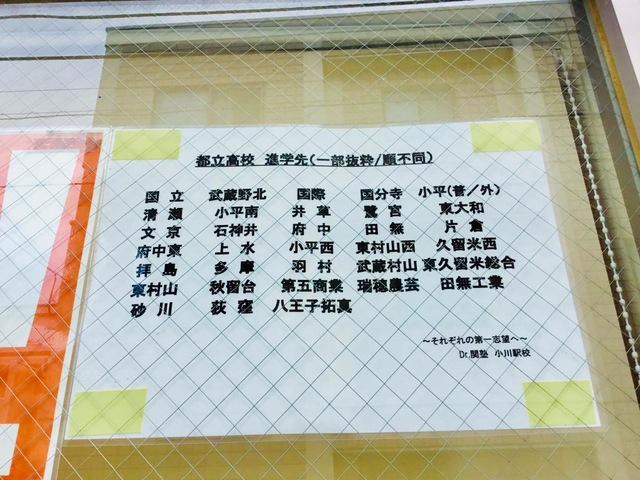 都立高校 進学先(一部抜粋/順不同)
国立 武蔵野北 国際 国分寺 小平(普/外)
清瀬 小平南 井草 鷺宮 東大和
文京 石神井 府中 田無 片倉
府中東 上水 小平西 東村山西 久留米西
拝島 多摩 羽村 武蔵村山 東久留米総合
東村山 秋留台 第五商業 瑞穂農芸 田無工業
砂川 荻窪 八王子拓真
~それぞれの第一志望へ~
Dr.関塾 小川駅校